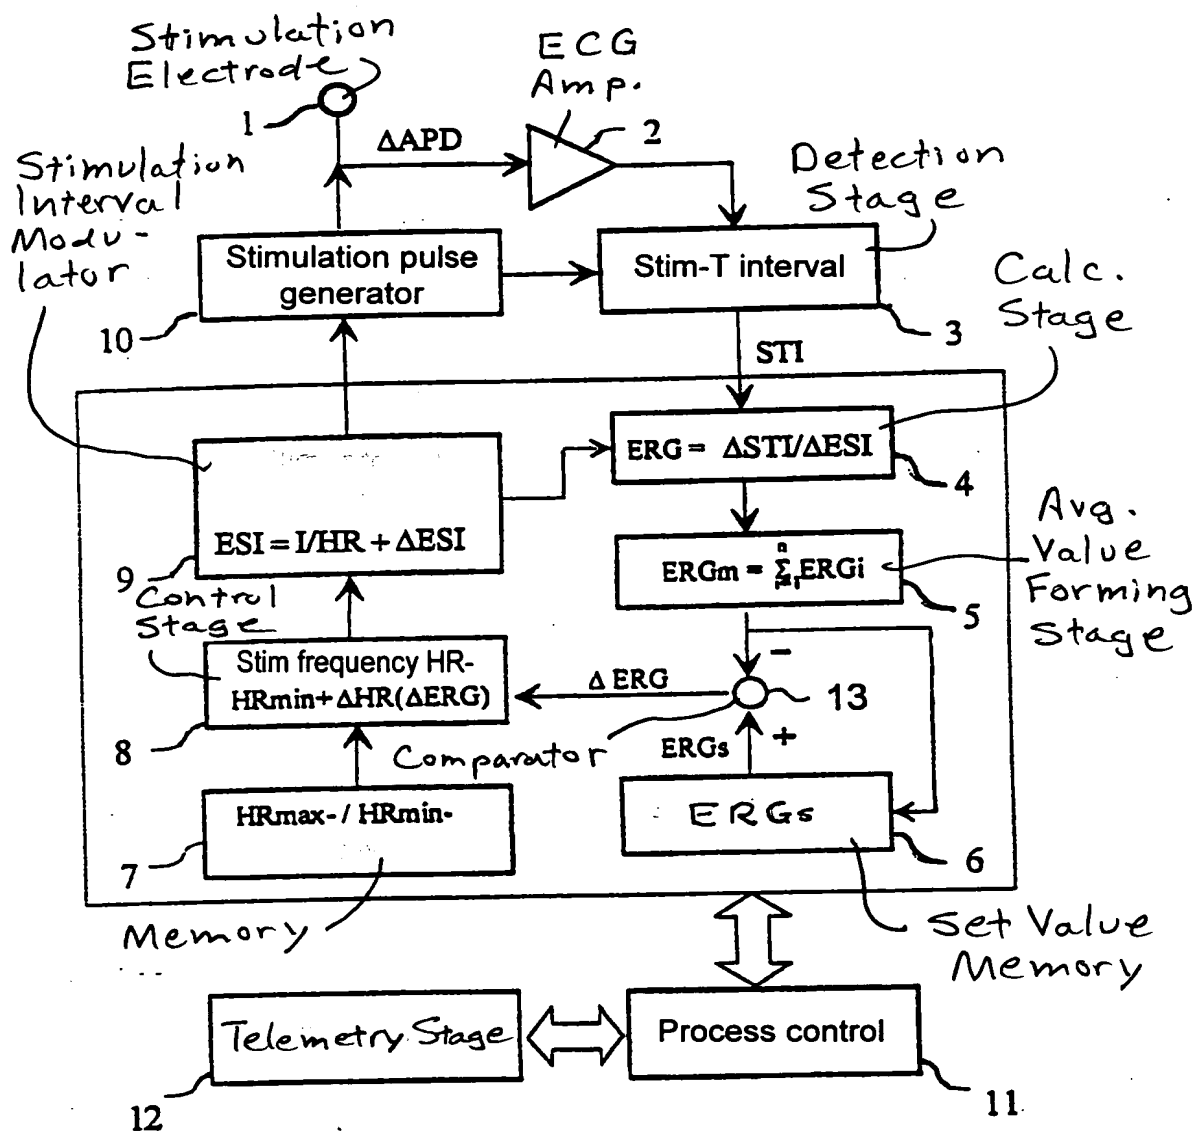 Stimulation
Electrode
1
ECG
Amp.
2
ΔAPD
Stimulation
Interval
Modu-
lator
Detection
Stage
Stimulation pulse
generator
10
Stim-T interval
3
Calc.
Stage
STI
ERG = ΔSTI/ΔESI
4
ESI = I/HR + ΔESI
9
Avg.
Value
Forming
Stage
ERGm = n Σ i=1 ERGi
5
Control
Stage
Stim frequency HR-
HRmin+ ΔHR(ΔERG)
8
Δ ERG
−
13
Comparator
ERGs
+
HRmax- / HRmin-
7
ERGs
6
Memory
Set Value
Memory
Telemetry Stage
12
Process control
11